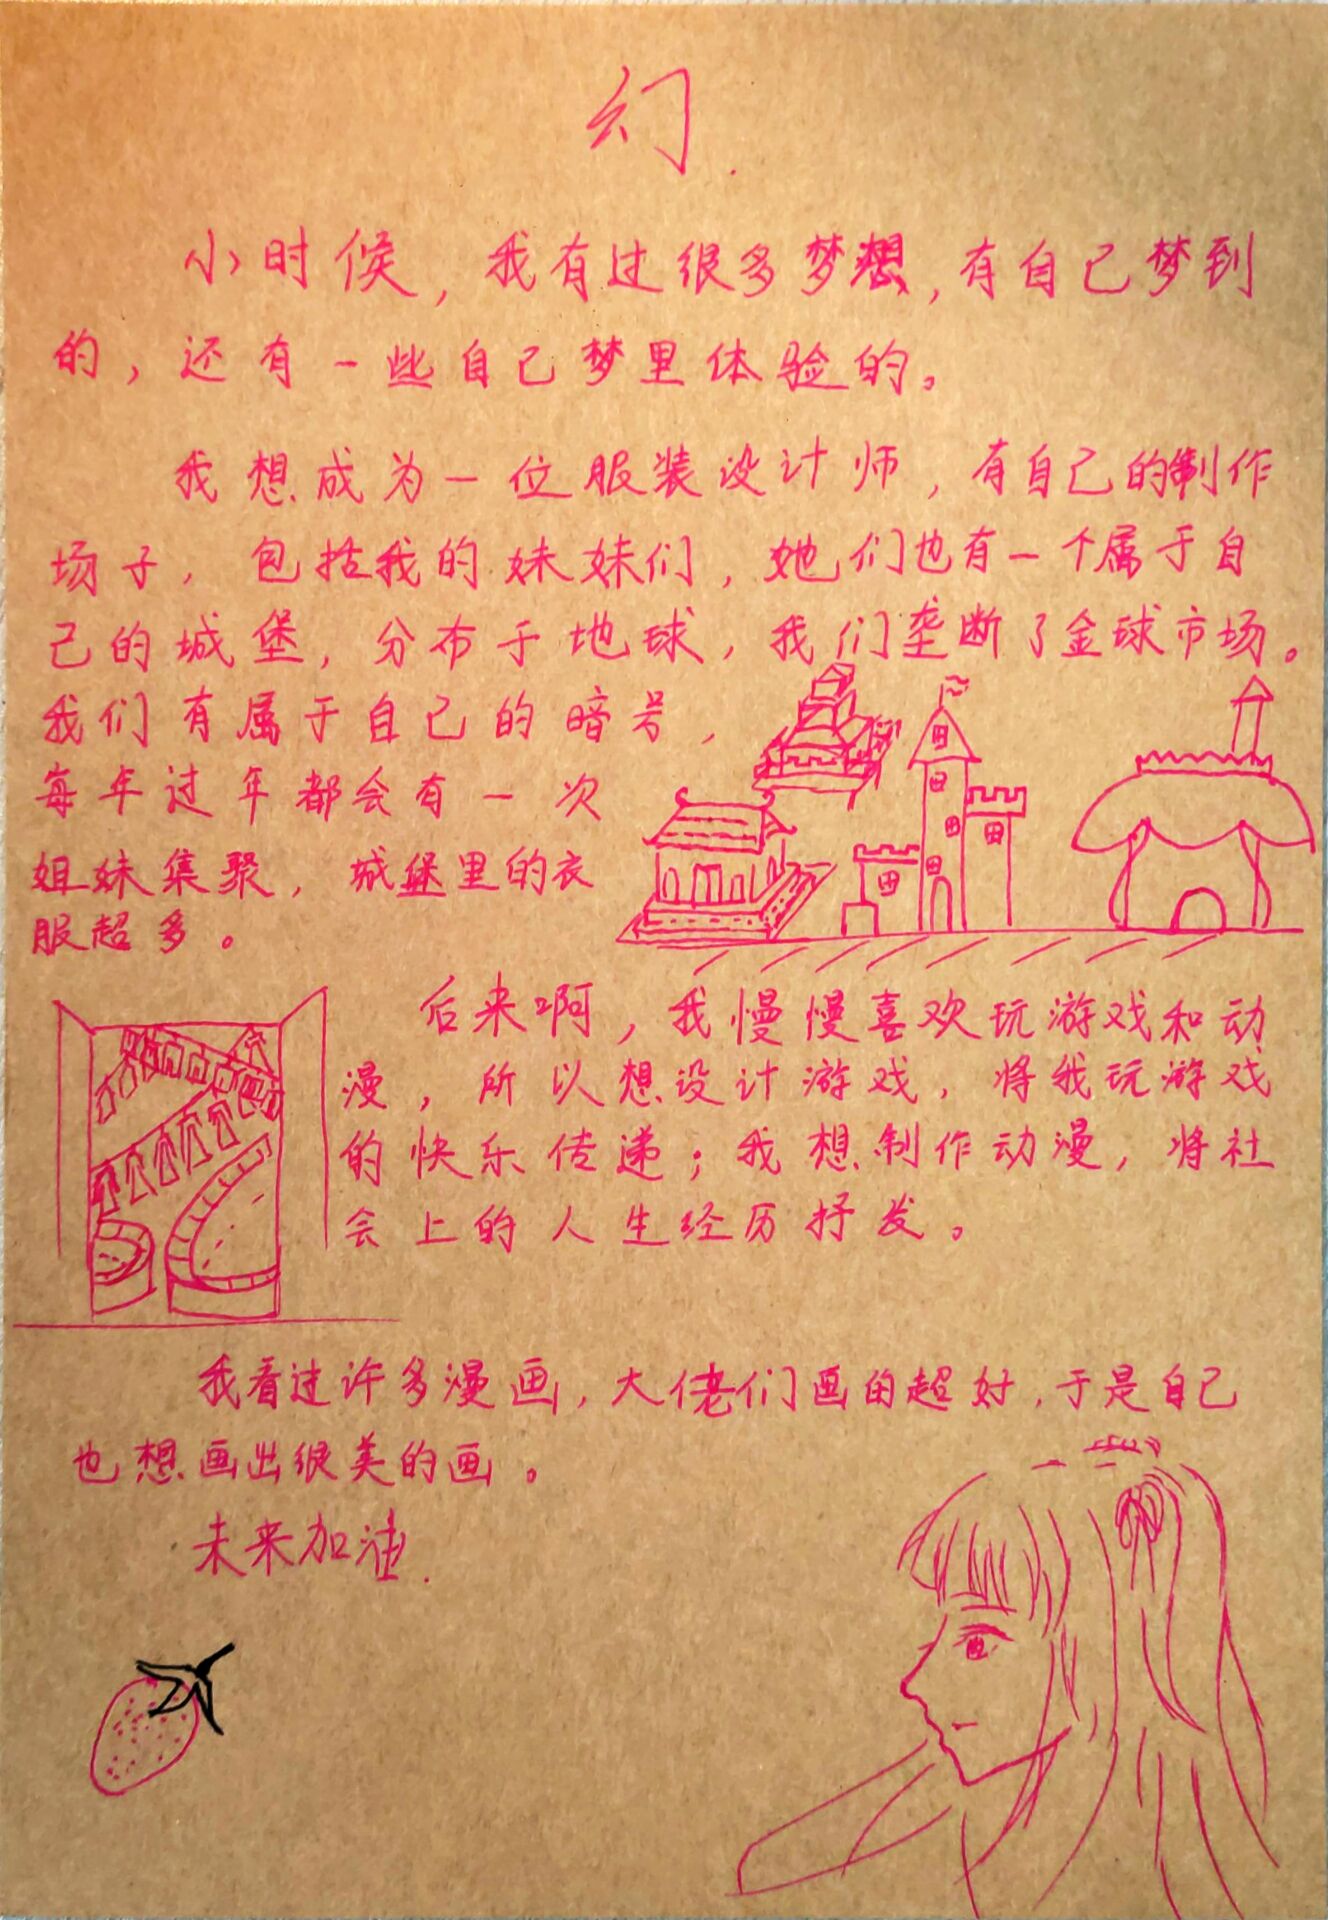 幻.
小时候，我有过很多梦想，有自己梦到
的，还有一些自己梦里体验的。
我想成为一位服装设计师，有自己的制作
场子，包括我的妹妹们，她们也有一个属于自
己的城堡，分布于地球，我们垄断了金球市场。
我们有属于自己的暗号，
每年过年都会有一次
姐妹集聚，城堡里的衣
服超多。
后来啊，我慢慢喜欢玩游戏和动
漫，所以想设计游戏，将我玩游戏
的快乐传递；我想制作动漫，将社
会上的人生经历抒发。
我看过许多漫画，大佬们画的超好，于是自己
也想画出很美的画。
未来加油.